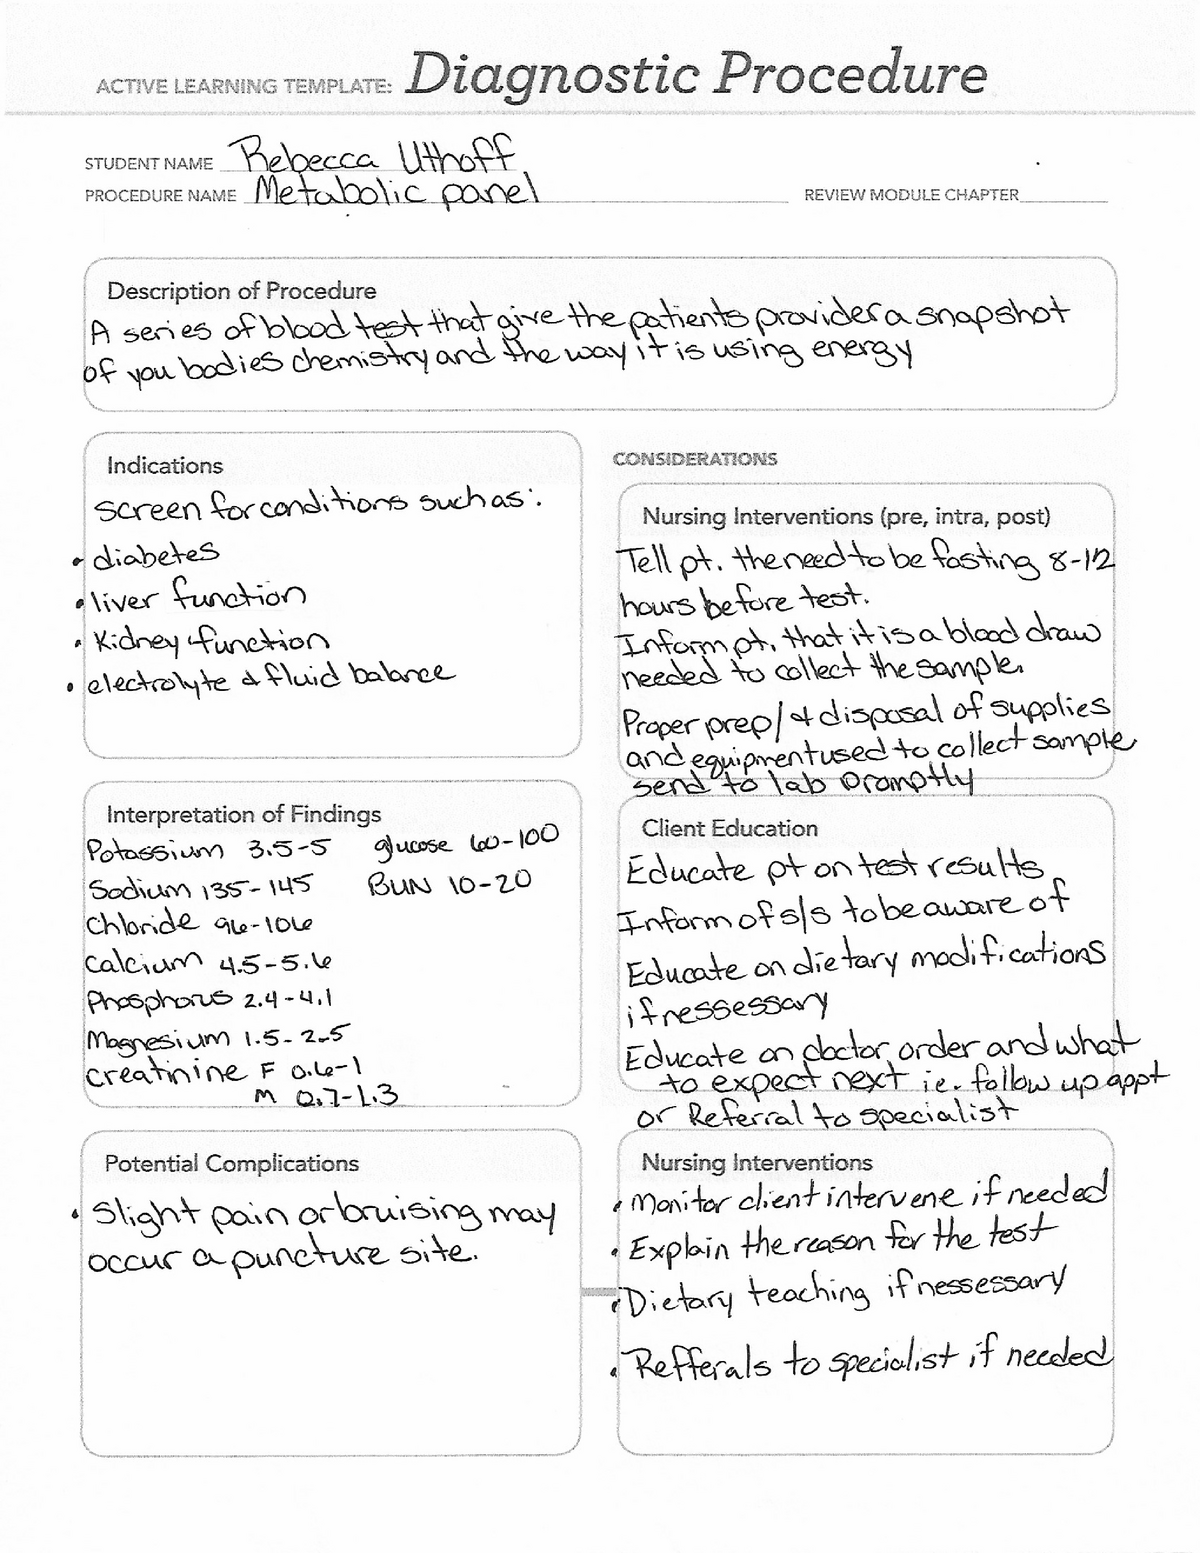 ACTIVE LEARNING TEMPLATE: Diagnostic Procedure
STUDENT NAME Rebecca Uthoff
PROCEDURE NAME Metabolic panel
REVIEW MODULE CHAPTER
Description of Procedure
A series of blood test that give the patients provider a snapshot
of you bodies chemistry and the way it is using energy
Indications
Screen for conditions such as:
• diabetes
• liver function
• Kidney function
• electrolyte & fluid balance
CONSIDERATIONS
Nursing Interventions (pre, intra, post)
Tell pt. the need to be fasting 8-12
hours before test.
Inform pt. that it is a blood draw
needed to collect the sample.
Proper prep/& disposal of supplies
and equipment used to collect sample
send to lab promptly
Interpretation of Findings
Potassium 3.5-5 glucose 60-100
Sodium 135-145 BUN 10-20
Chloride 96-106
Calcium 4.5-5.6
Phosphorus 2.4-4.1
Magnesium 1.5-2.5
Creatinine F 0.6-1
M 0.7-1.3
Client Education
Educate pt on test results.
Inform of s/s to be aware of
Educate on dietary modifications
if nessessary
Educate on doctor order and what
to expect next ie. follow up appt
or Referral to specialist
Potential Complications
• Slight pain or bruising may
occur a puncture site.
Nursing Interventions
• Monitor client intervene if needed
• Explain the reason for the test
• Dietary teaching if nessessary
• Refferals to specialist if needed